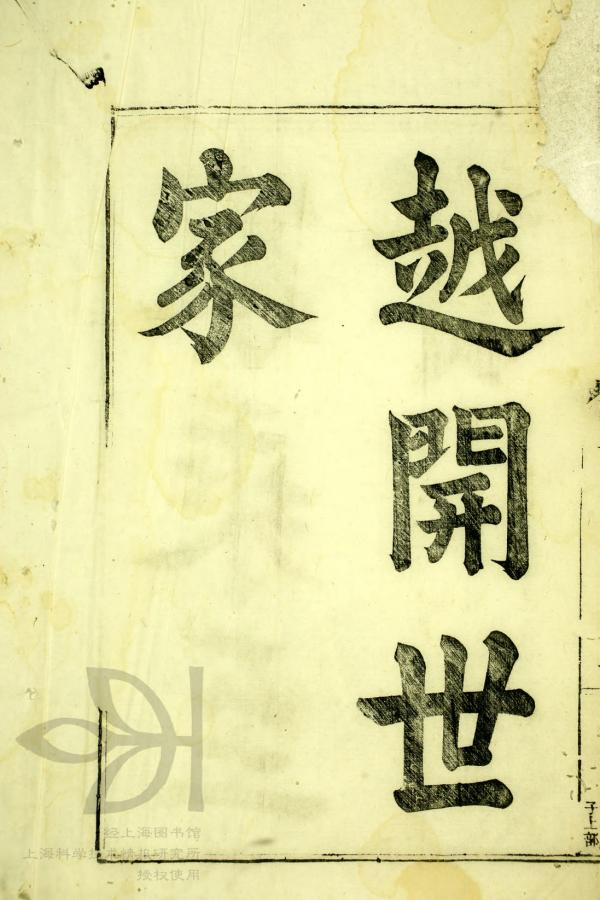 越開世
家
子上部
经上海图书馆
上海科学技术情报研究所
授权使用